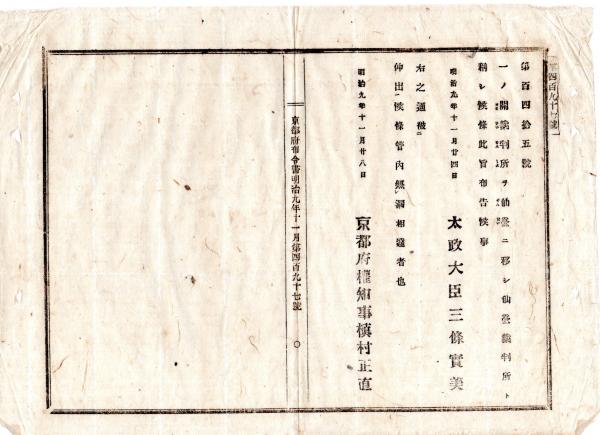 第四百九十七號
第百四拾五號
一ノ關裁判所ヲ仙臺ニ移シ仙臺裁判所ト
稱シ候條此旨布告候事
明治九年十一月廿四日
太政大臣三條實美
右之通被ニ
仰出一候條管内無漏相達者也
明治九年十一月廿八日
京都府權知事槇村正直
京都府布令書明治九年十一月第四百九十七號 〇